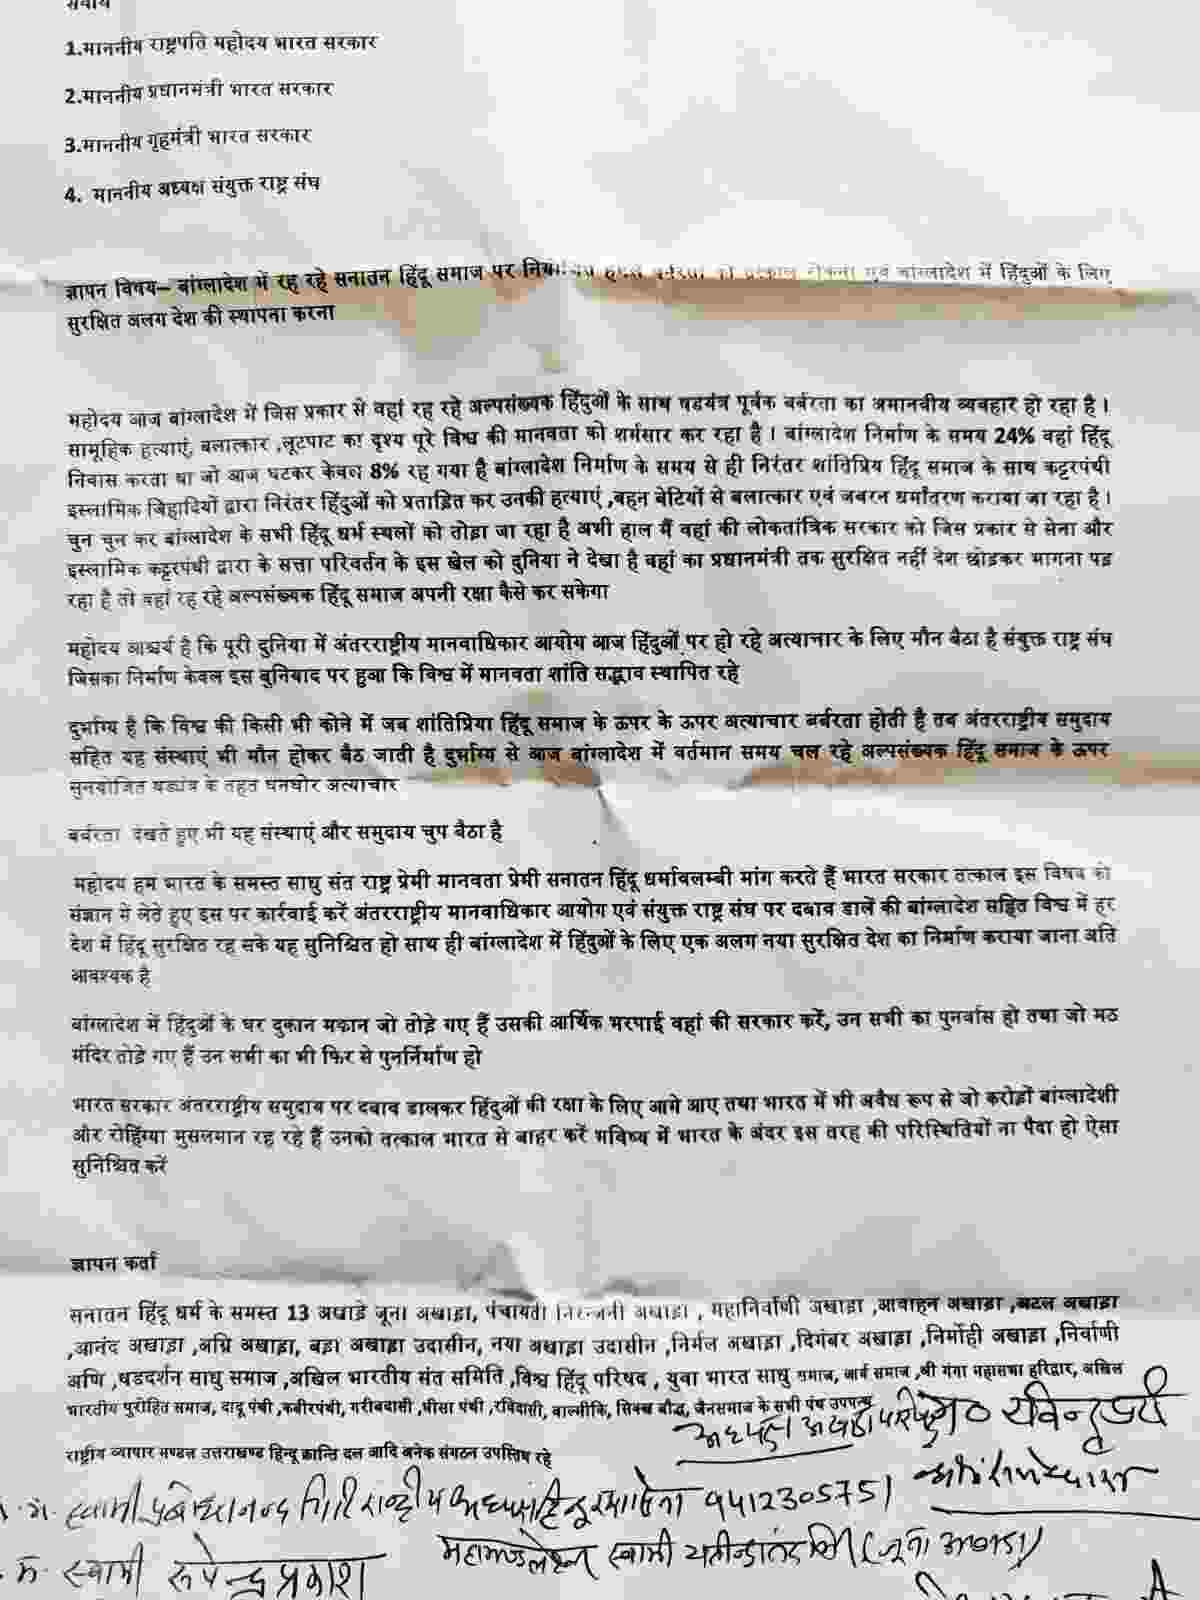 सेवार्थ
1.माननीय राष्ट्रपति महोदय भारत सरकार
2.माननीय प्रधानमंत्री भारत सरकार
3.माननीय गृहमंत्री भारत सरकार
4. माननीय अध्यक्ष संयुक्त राष्ट्र संघ
ज्ञापन विषय– बांग्लादेश में रह रहे सनातन हिंदू समाज पर बर्बरता को तत्काल रोकना एवं बांग्लादेश में हिंदुओं के लिए
सुरक्षित अलग देश की स्थापना करना
महोदय आज बांग्लादेश में जिस प्रकार से वहां रह रहे अल्पसंख्यक हिंदुओं के साथ षडयंत्र पूर्वक बर्बरता का अमानवीय व्यवहार हो रहा है ।
सामूहिक हत्याएं, बलात्कार ,लूटपाट का दृश्य पूरे विश्व की मानवता को शर्मसार कर रहा है । बांग्लादेश निर्माण के समय 24% वहां हिंदू
निवास करता था जो आज घटकर केवल 8% रह गया है बांग्लादेश निर्माण के समय से ही निरंतर शांतिप्रिय हिंदू समाज के साथ कट्टरपंथी
इस्लामिक जिहादियों द्वारा निरंतर हिंदुओं को प्रताड़ित कर उनकी हत्याएं ,बहन बेटियों से बलात्कार एवं जबरन धर्मांतरण कराया जा रहा है ।
चुन चुन कर बांग्लादेश के सभी हिंदू धर्म स्थलों को तोड़ा जा रहा है अभी हाल मैं वहां की लोकतांत्रिक सरकार को जिस प्रकार से सेना और
इस्लामिक कट्टरपंथी द्वारा के सत्ता परिवर्तन के इस खेल को दुनिया ने देखा है वहां का प्रधानमंत्री तक सुरक्षित नहीं देश छोड़कर भागना पड़
रहा है तो वहां रह रहे अल्पसंख्यक हिंदू समाज अपनी रक्षा कैसे कर सकेगा
महोदय आश्चर्य है कि पूरी दुनिया में अंतरराष्ट्रीय मानवाधिकार आयोग आज हिंदुओं पर हो रहे अत्याचार के लिए मौन बैठा है संयुक्त राष्ट्र संघ
जिसका निर्माण केवल इस बुनियाद पर हुआ कि विश्व में मानवता शांति सद्भाव स्थापित रहे
दुर्भाग्य है कि विश्व की किसी भी कोने में जब शांतिप्रिया हिंदू समाज के ऊपर के ऊपर अत्याचार बर्बरता होती है तब अंतरराष्ट्रीय समुदाय
सहित यह संस्थाएं भी मौन होकर बैठ जाती है दुर्भाग्य से आज बांग्लादेश में वर्तमान समय चल रहे अल्पसंख्यक हिंदू समाज के ऊपर
सुनयोजित षड्यंत्र के तहत घनघोर अत्याचार
बर्बरता देखते हुए भी यह संस्थाएं और समुदाय चुप बैठा है
महोदय हम भारत के समस्त साधु संत राष्ट्र प्रेमी मानवता प्रेमी सनातन हिंदू धर्मावलम्बी मांग करते हैं भारत सरकार तत्काल इस विषय को
संज्ञान में लेते हुए इस पर कार्रवाई करें अंतरराष्ट्रीय मानवाधिकार आयोग एवं संयुक्त राष्ट्र संघ पर दबाव डालें की बांग्लादेश सहित विश्व में हर
देश में हिंदू सुरक्षित रह सके यह सुनिश्चित हो साथ ही बांग्लादेश में हिंदुओं के लिए एक अलग नया सुरक्षित देश का निर्माण कराया जाना अति
आवश्यक है
बांग्लादेश में हिंदुओं के घर दुकान मकान जो तोड़े गए हैं उसकी आर्थिक भरपाई वहां की सरकार करें, उन सभी का पुनर्वास हो तथा जो मठ
मंदिर तोड़े गए हैं उन सभी का भी फिर से पुनर्निर्माण हो
भारत सरकार अंतरराष्ट्रीय समुदाय पर दबाव डालकर हिंदुओं की रक्षा के लिए आगे आए तथा भारत में भी अवैध रूप से जो करोड़ों बांग्लादेशी
और रोहिंग्या मुसलमान रह रहे हैं उनको तत्काल भारत से बाहर करें भविष्य में भारत के अंदर इस तरह की परिस्थितियों ना पैदा हो ऐसा
सुनिश्चित करें
ज्ञापन कर्ता
सनातन हिंदू धर्म के समस्त 13 अखाड़े जूना अखाड़ा, पंचायती निरन्जनी अखाड़ा , महानिर्वाणी अखाड़ा ,आवाहन अखाड़ा ,अटल अखाड़ा
,आनंद अखाड़ा ,अग्नि अखाड़ा, बड़ा अखाड़ा उदासीन, नया अखाड़ा उदासीन ,निर्मल अखाड़ा ,दिगंबर अखाड़ा ,निर्मोही अखाड़ा ,निर्वाणी
अणि ,षडदर्शन साधु समाज ,अखिल भारतीय संत समिति ,विश्व हिंदू परिषद , युवा भारत साधु समाज, आर्य समाज ,श्री गंगा महासभा हरिद्वार, अखिल
भारतीय पुरोहित समाज, दादू पंथी ,कबीरपंथी, गरीबदासी ,घीसा पंथी ,रविदासी, वाल्मीकि, सिक्ख बौद्ध, जैनसमाज के सभी पंथ उपपन्थ
अध्यक्ष अखाड़ा परिषद रविन्द्र पुरी
राष्ट्रीय व्यापार मण्डल उत्तराखण्ड हिन्दू क्रान्ति दल आदि अनेक संगठन उपस्तिथ रहे
म. स्वामी प्रबोधानन्द गिरि राष्ट्रीय अध्यक्ष हिन्दू रक्षा सेना 9412305751
महामण्डलेश्वर स्वामी यतीन्द्रानंद गिरि (जूना अखाड़ा)
म. स्वामी रूपेन्द्र प्रकाश